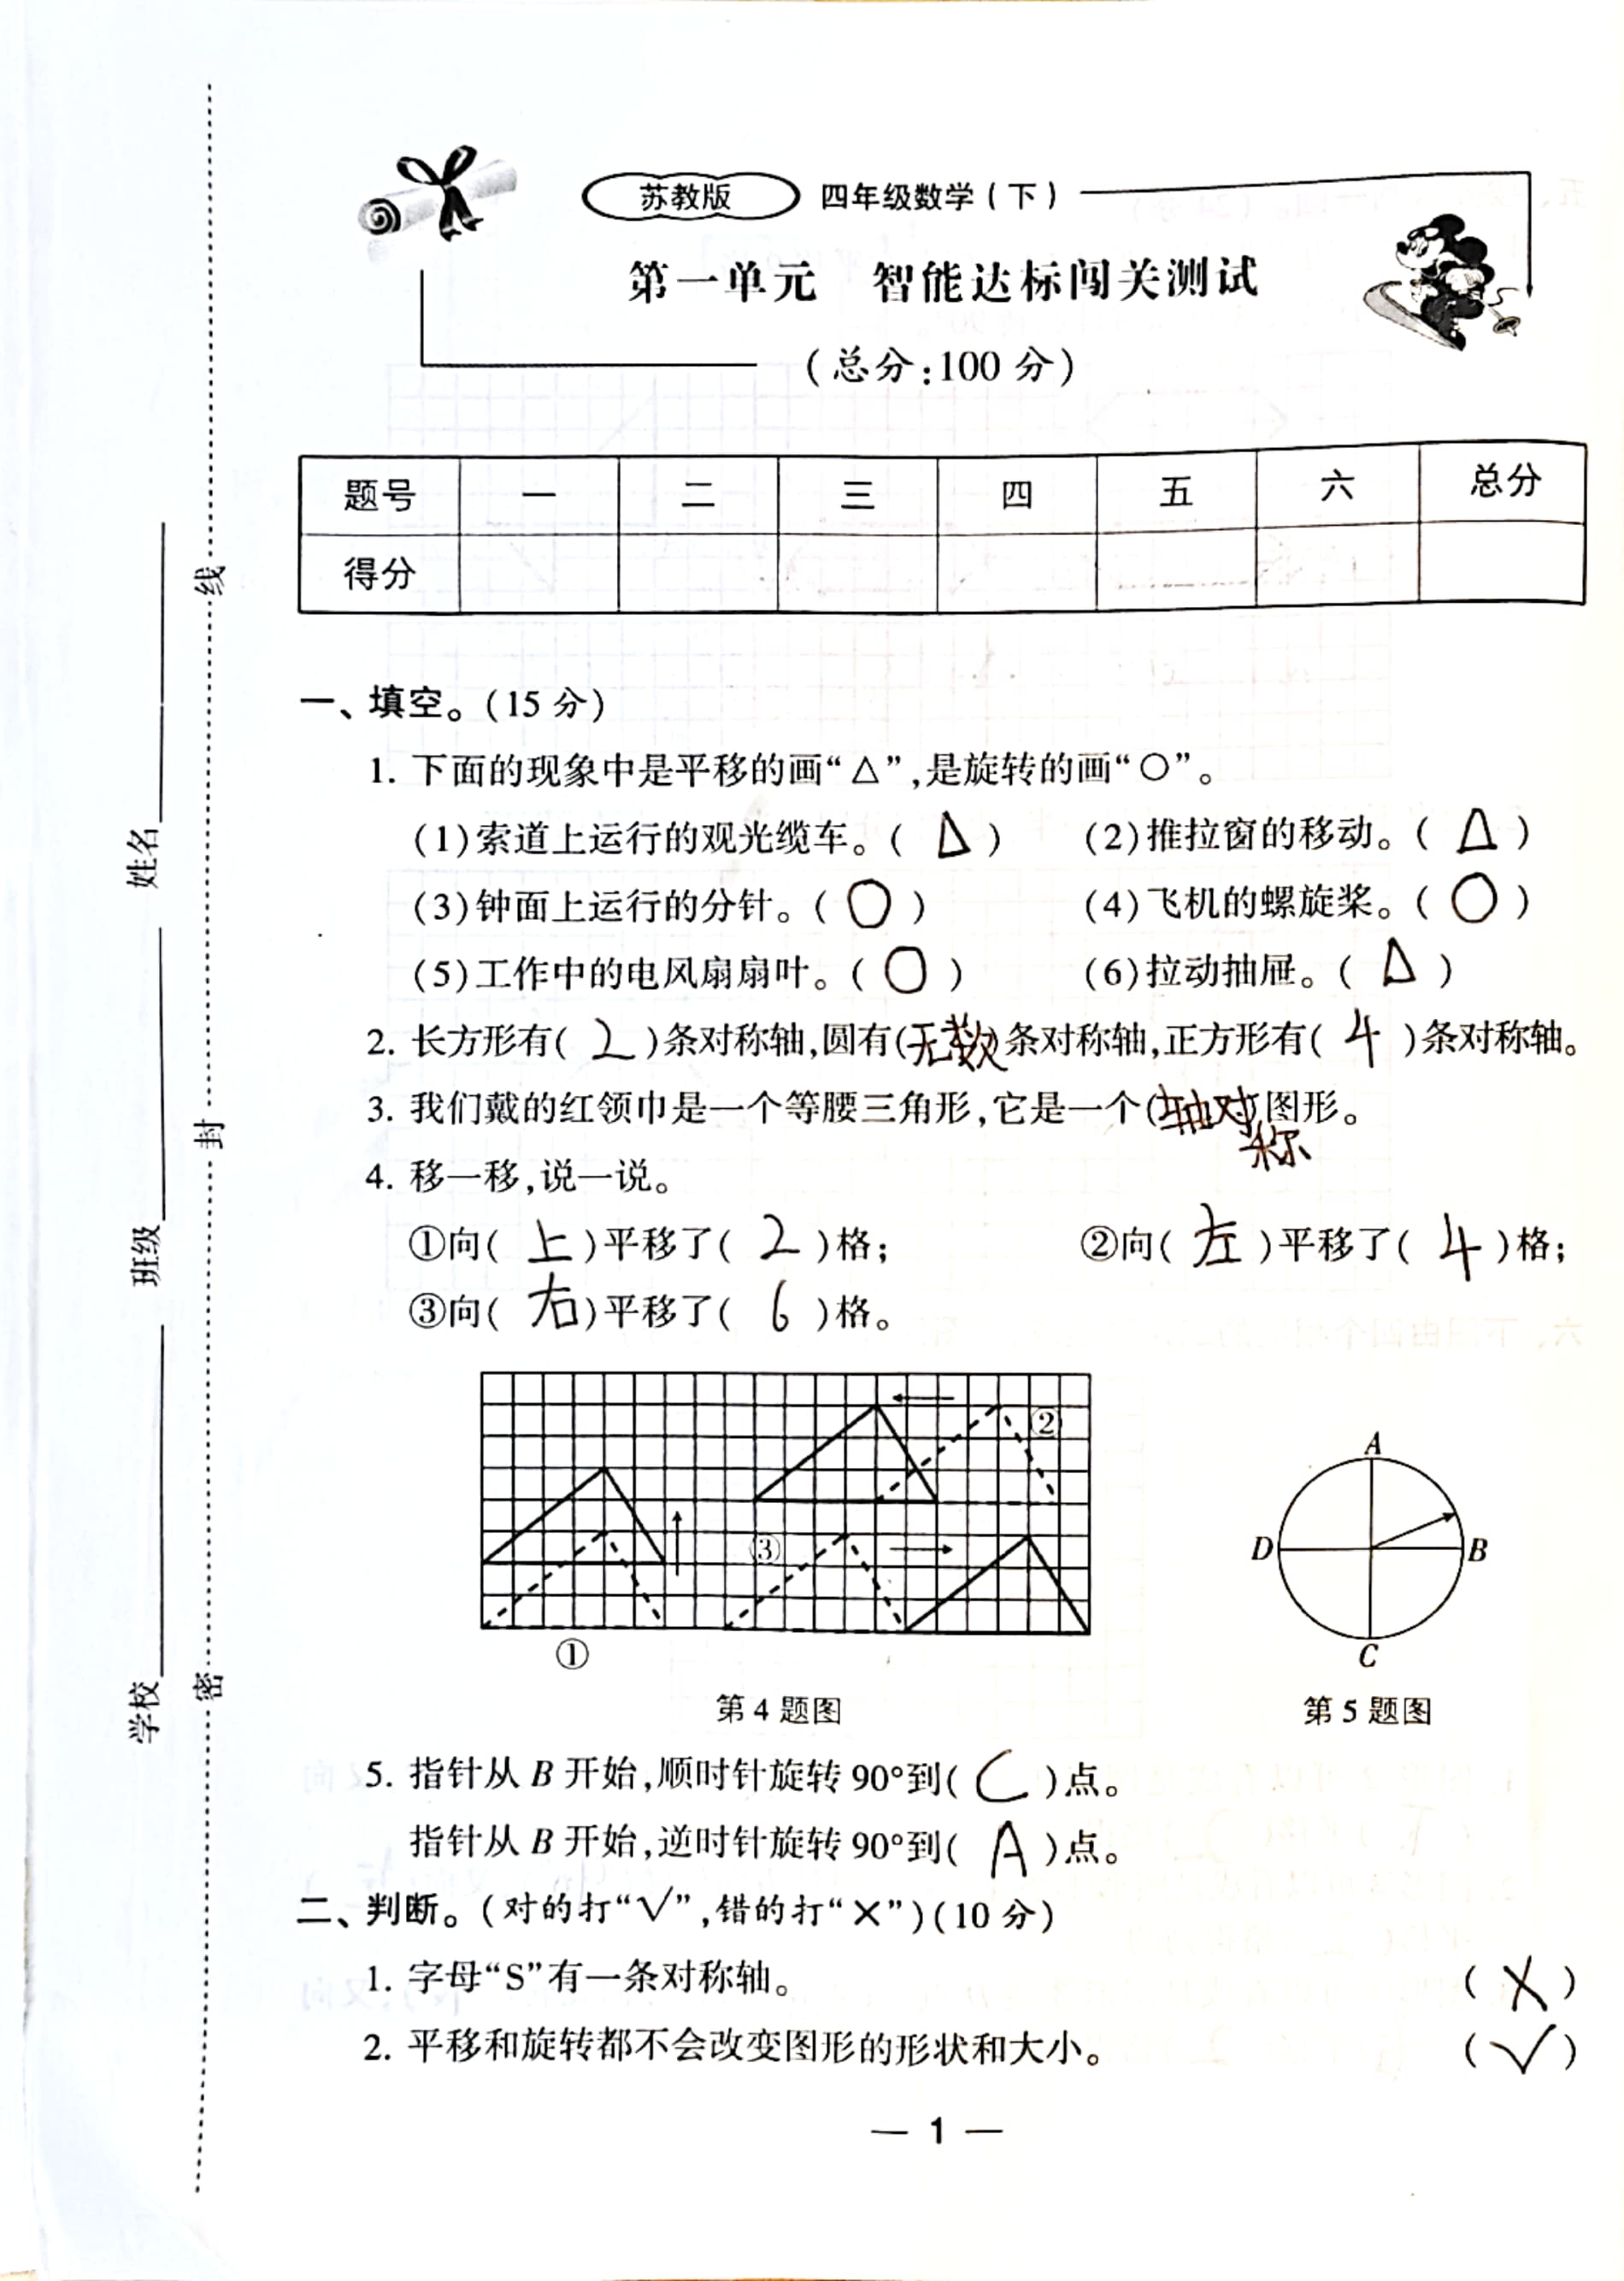 苏教版 四年级数学(下)
第一单元 智能达标闯关测试
(总分:100 分)
题号 一 二 三 四 五 六 总分
得分
一、填空。(15 分)
1. 下面的现象中是平移的画“△”,是旋转的画“○”。
(1)索道上运行的观光缆车。( △ ) (2)推拉窗的移动。( △ )
(3)钟面上运行的分针。( ○ ) (4)飞机的螺旋桨。( ○ )
(5)工作中的电风扇扇叶。( ○ ) (6)拉动抽屉。( △ )
2. 长方形有( 2 )条对称轴,圆有(无数)条对称轴,正方形有( 4 )条对称轴。
3. 我们戴的红领巾是一个等腰三角形,它是一个(轴对称)图形。
4. 移一移,说一说。
①向( 上 )平移了( 2 )格; ②向( 左 )平移了( 4 )格;
③向( 右 )平移了( 6 )格。
②
③
①
A
D
B
C
第 4 题图 第 5 题图
5. 指针从 B 开始,顺时针旋转 90°到( C )点。
指针从 B 开始,逆时针旋转 90°到( A )点。
二、判断。(对的打“√”,错的打“×”)(10 分)
1. 字母“S”有一条对称轴。 ( × )
2. 平移和旋转都不会改变图形的形状和大小。 ( √ )
— 1 —
学校 班级 姓名
密 封 线